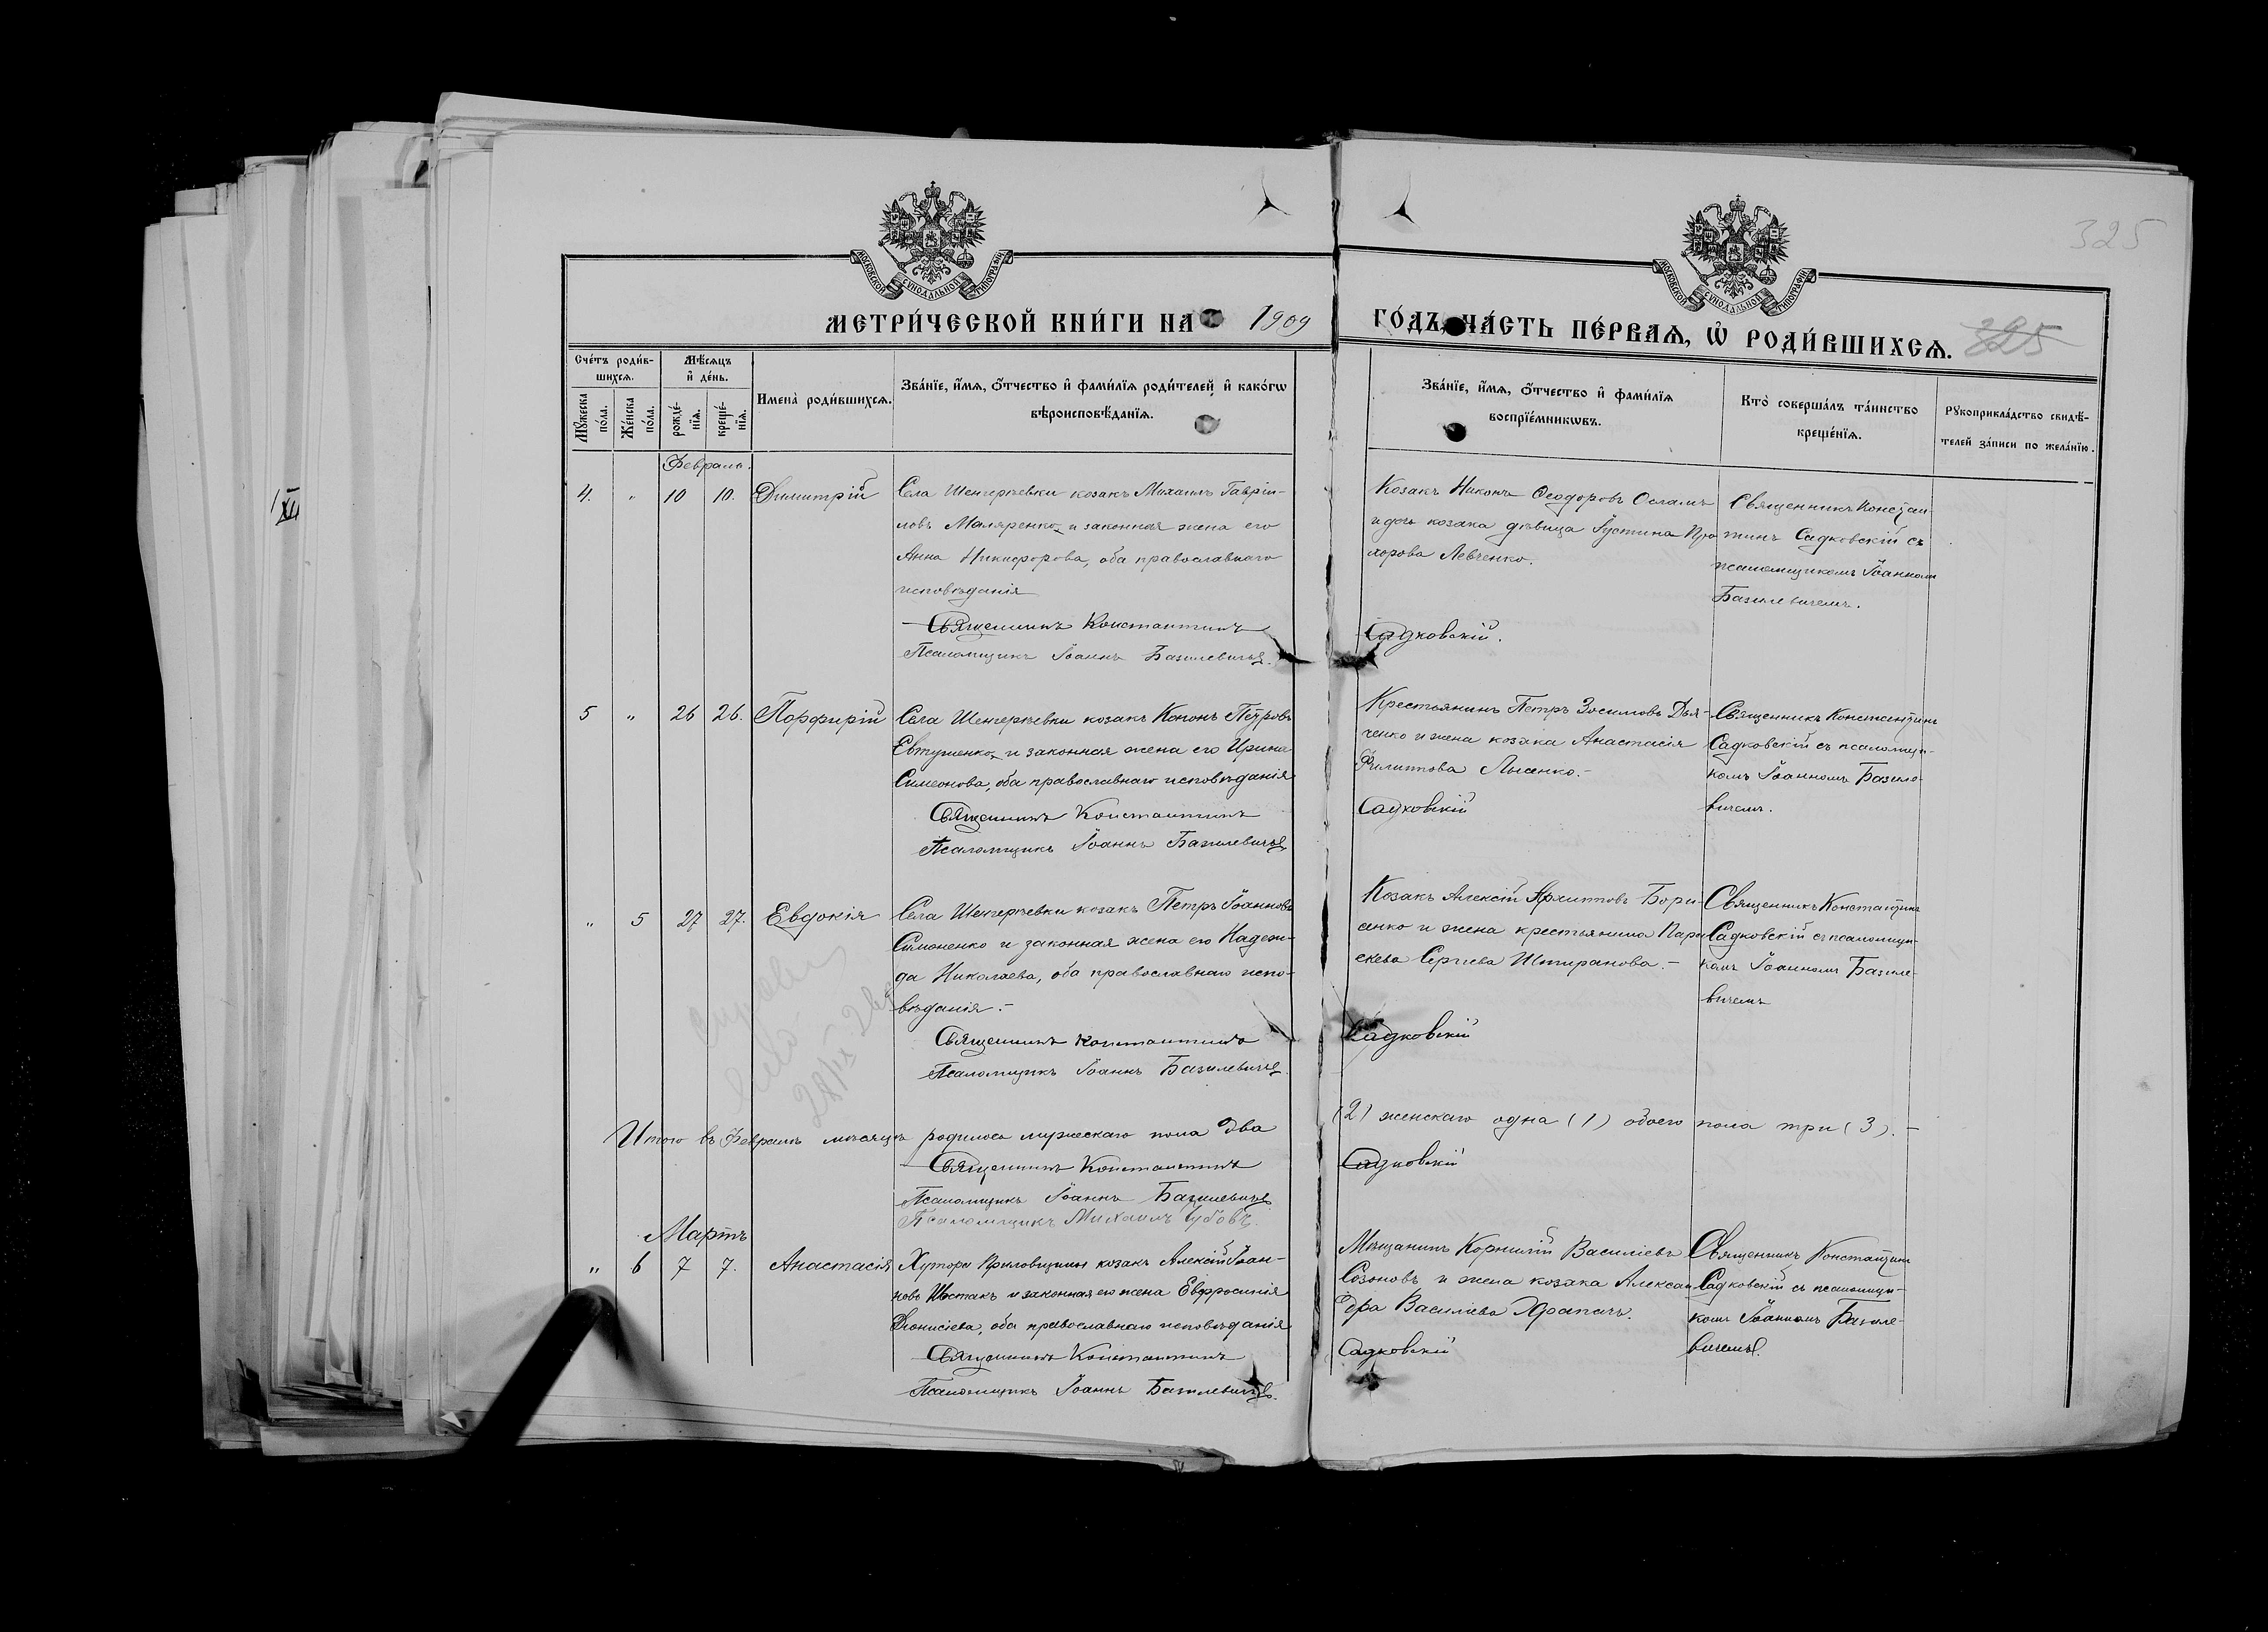 325
МОСКОВСКОЙ СѴНОДАЛЬНОЙ ТИПОГРАФІИ
МОСКОВСКОЙ СѴНОДАЛЬНОЙ ТИПОГРАФІИ
МЕТРИ́ЧЕСКОЙ КНИ́ГИ НА 1909
ГО́ДЪ, ЧА́СТЬ ПЕ́РВАѦ, Ѡ҆ РОДИ́ВШИХСѦ. 325
Сче́тъ роди́в-
шихсѧ.
Мѣ́сѧцъ
и҆ де́нь.
Мꙋ́жеска
по́ла.
Же́нска
по́ла.
рожде́-
нїѧ.
креще́-
нїѧ.
Имена̀ роди́вшихсѧ.
Зва́нїе, и҆́мѧ, ѻ҆́тчество и҆ фами́лїѧ роди́телей, и҆ како́гѡ
вѣроисповѣ́данїѧ.
Зва́нїе, и҆́мѧ, ѻ҆́тчество и҆ фами́лїѧ
воспрїе́мникѡвъ.
Кто̀ соверша́лъ та́инство
креще́нїѧ.
Рꙋкоприкла́дство свидѣ́-
телей за́писи по жела́нїю.
Февраль.
4. " 10 10. Димитрій
Села Шенгерѣевки козакъ Михаилъ Гавріи-
ловъ Маляренко и законная жена его
Анна Никифорова, оба православнаго
исповѣданія
Священникъ Константинъ
Псаломщикъ Іоаннъ Базилевичъ
Козакъ Никонъ Ѳеодоровъ Осламъ
и дочь козака дѣвица Іустина Про
хорова Левченко.
Садковскій.
Священникъ Констан-
тинъ Садковскій съ
псаломщикомъ Іоанномъ
Базилевичемъ.
5 " 26 26. Порфирій
Села Шенгерѣевки козакъ Кононъ Петровъ
Евтушенко и законная жена его Ирина
Симеонова, оба православнаго исповѣданія
Священникъ Константинъ
Псаломщикъ Іоаннъ Базилевичъ
Крестьянинъ Петръ Зосимовъ Дья-
ченко и жена козака Анастасія
Филиппова Лысенко.-
Садковскій
Священникъ Константинъ
Садковскій съ псаломщи-
комъ Іоанномъ Базиле-
вичемъ.
" 5 27 27. Евдокія
Села Шенгерѣевки козакъ Петръ Іоанновъ
Симоненко и законная жена его Надеж-
да Николаева, оба православнаго испо-
вѣданія.-
Священникъ Константинъ
Псаломщикъ Іоаннъ Базилевичъ.
Козакъ Алексій Архиповъ Бори-
сенко и жена крестьянина Пара
скева Сергіева Штиранова.-
Садковскій
Священникъ Константинъ
Садковскій съ псаломщи-
комъ Іоанномъ Базиле-
вичемъ
Итого въ Февралѣ мѣсяцѣ родилось мужескаго пола два
(2) женскаго одна (1) обоего пола три (3).-
Священникъ Константинъ
Садковскій
Псаломщикъ Іоаннъ Базилевичъ
Псаломщикъ Михаилъ
Мартъ
" 6 7 7. Анастасія
Хутора козакъ Алексій Іоан-
новъ Шостакъ и законная его жена Евфросинія
Діонисіева, оба православнаго исповѣданія
Священникъ Константинъ
Псаломщикъ Іоаннъ Базилевичъ.
Мѣщанинъ Корнилій Василіевъ
Созоновъ и жена козака Алексан
дра Василіева Храпачъ.
Садковскій
Священникъ Константинъ
Садковскій съ псаломщи-
комъ Іоанномъ Базиле-
вичемъ.
XII